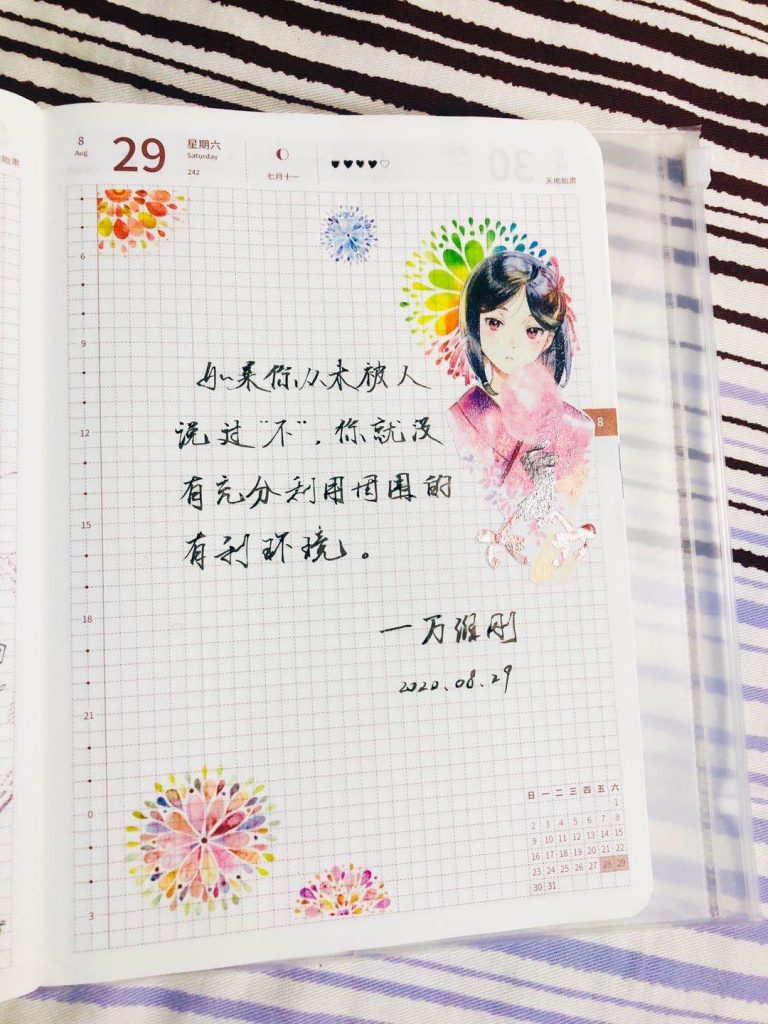 8
Aug
29
星期六
Saturday
242
七月十一
天地始肃
30
6
9
12
15
18
21
0
3
8
如果你从未被人
说过"不"，你就没
有充分利用周围的
有利环境。
一万维刚
2020.08.29
日 一 二 三 四 五 六
1
2 3 4 5 6 7 8
9 10 11 12 13 14 15
16 17 18 19 20 21 22
23 24 25 26 27 28 29
30 31
始肃